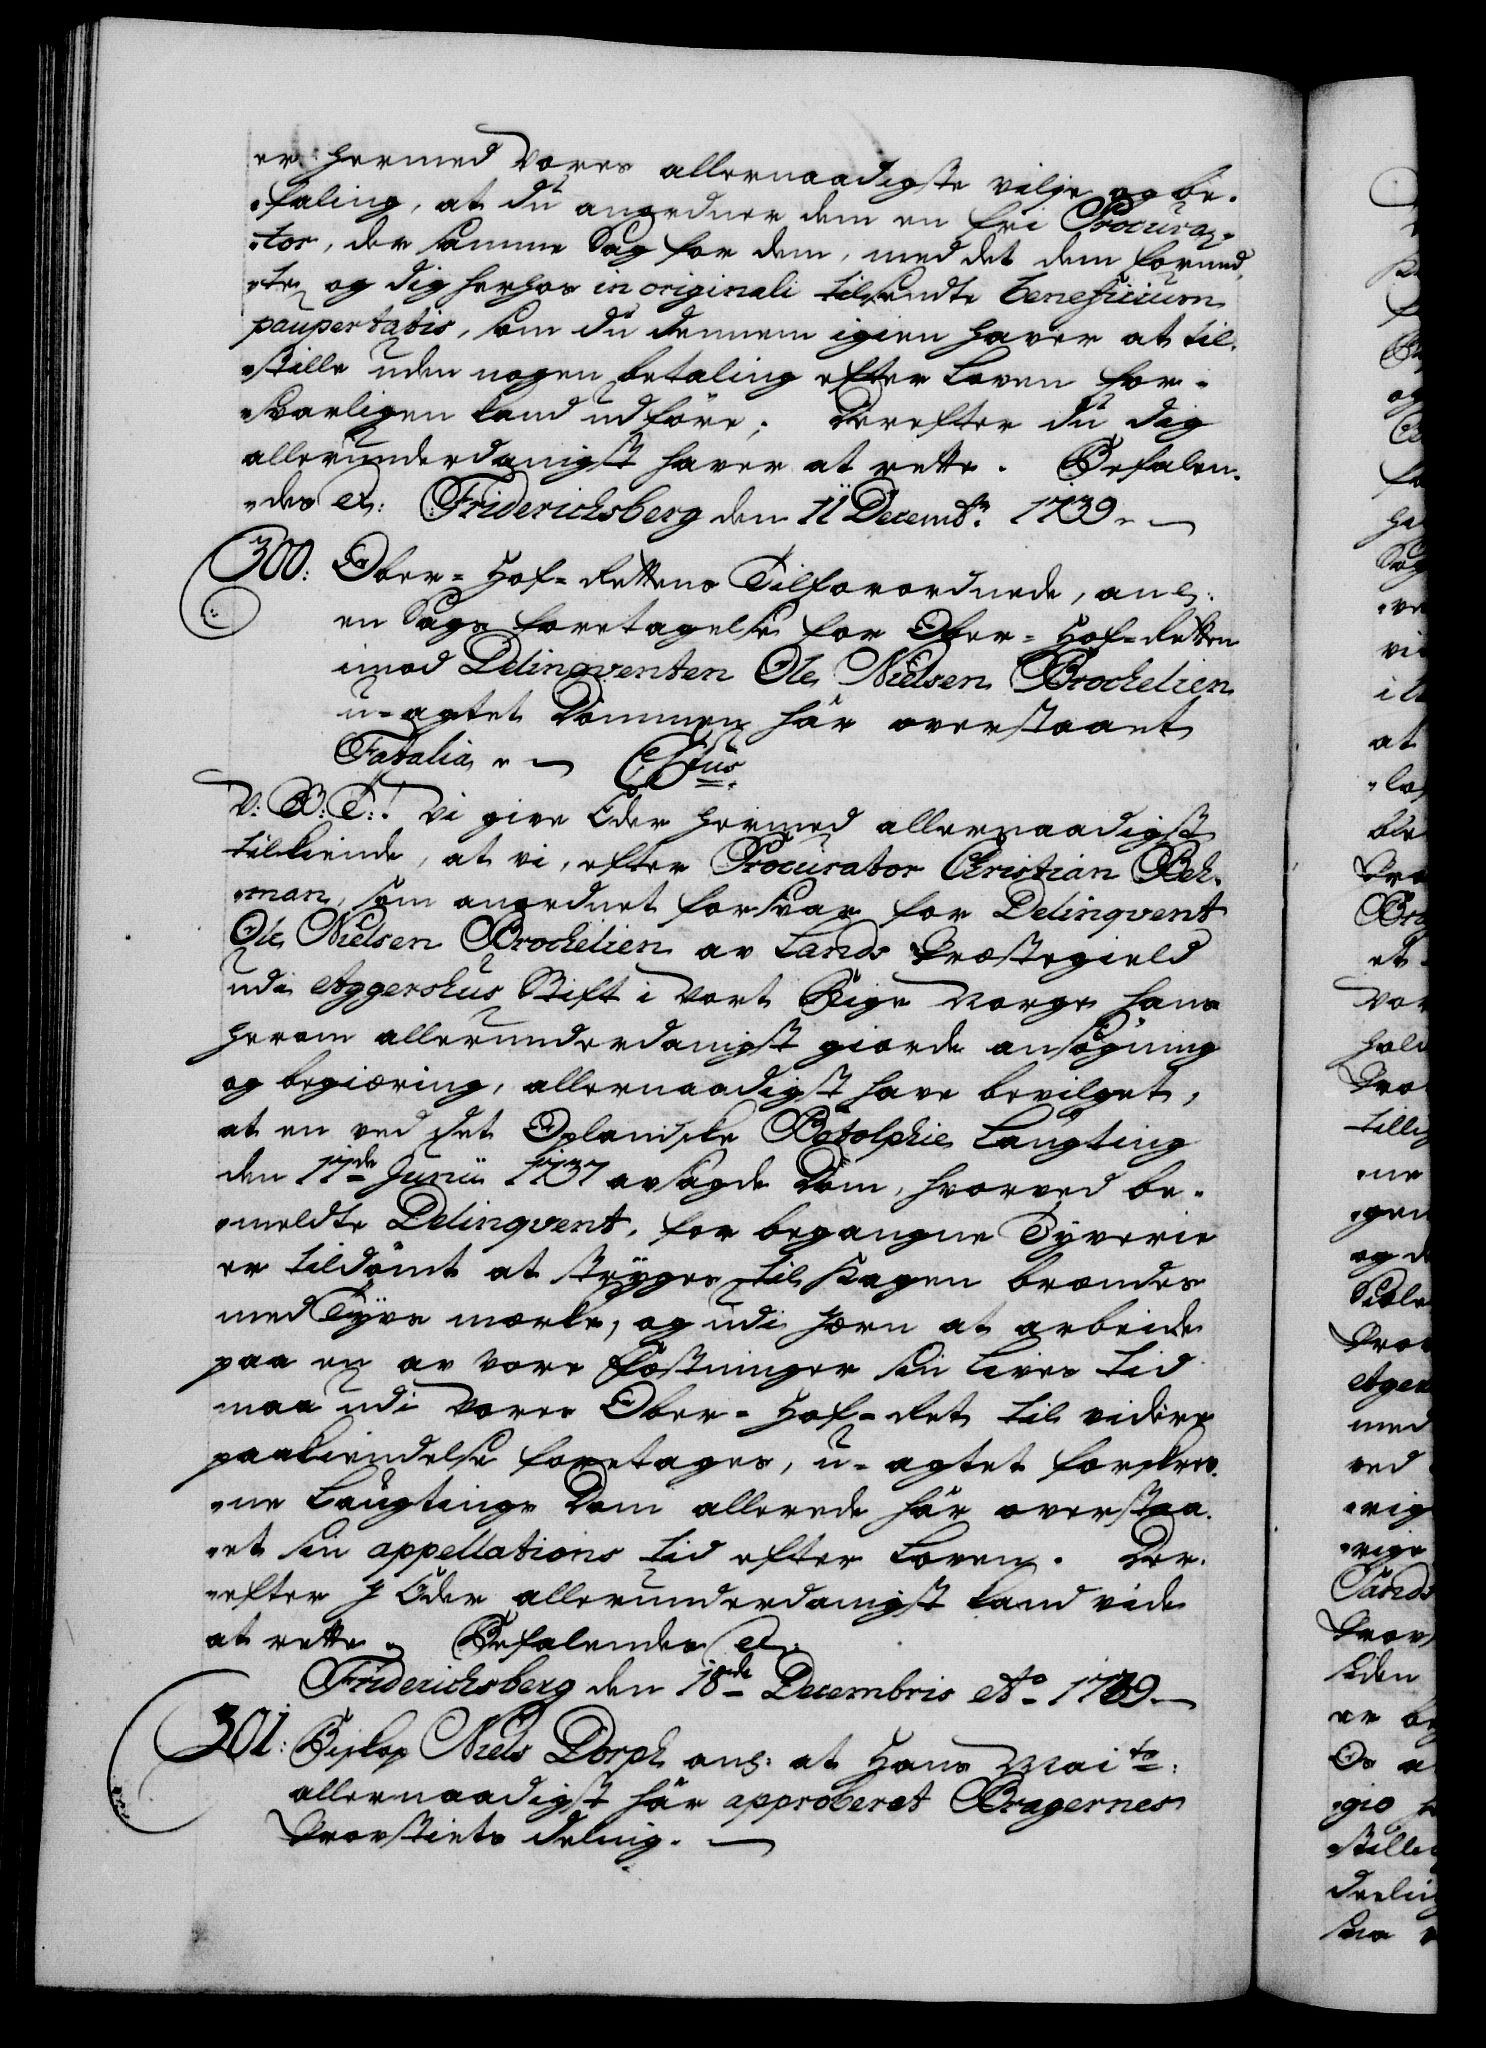 er hermed Vores allernaadigste vilje og be-
-faling, at du anordner dem en fri Procura-
-tor, der samme Sag for dem, med det dem forund-
-te og dig herhos in originali tilsendte beneficium
paupertatis, som du dennem igien haver at til-
-stille uden nogen betaling efter Loven for-
-svarligen kand udføre; Derefter du dig
allerunderdanigst haver at rette. Befalen-
-des etc: Friderichsberg den 11 Decembr: 1739.
300: Ober-Hof-Rettens Tilforordnede, anl:
en Sags foretagelse for Ober-Hof-Retten
imod Delinqventen Ole Nielsen Brochelien
u-agtet Dommen har overstaaet
Fatalia. C: 6tus
V: B: T:! Vi give Eder hermed allernaadigst
tilkiende, at vi, efter Procurator Christian Bek-
-man, som anordnet forsvar for Delinqvent
Ole Nielsen Brochelien av Lands Præstegield
udi Aggershus Stift i Vort Rige Norge hans
herom allerunderdanigst giorde ansøgning
og begiæring, allernaadigst have bevilget,
at en ved det Oplandske Botolphie Laugting
den 17de Junii 1737 avsagde Dom, hvorved be-
-meldte Delinqvent, for begangne Tyverie
er tildømt at stryges til Kagen brændes
med Tyvs mærke, og udi Jærn at arbeide
paa en av Vore Fæstninger sin Lives tid
maa udi Vores Ober-Hof-Ret til videre
paakiendelse foretages, u-agtet forskrev-
-ne Laugtings Dom allerede har overstaa-
-et sin appellations tid efter Loven. Der-
-efter I Eder allerunderdanigst kand vide
at rette. Befalendes etc:
Friderichsberg den 18de Decembris Ao 1739.
301: Biskop Niels Dorph anl: at Hans Maite:
allernaadigst har approberet Bragernes
Provstiets deling.